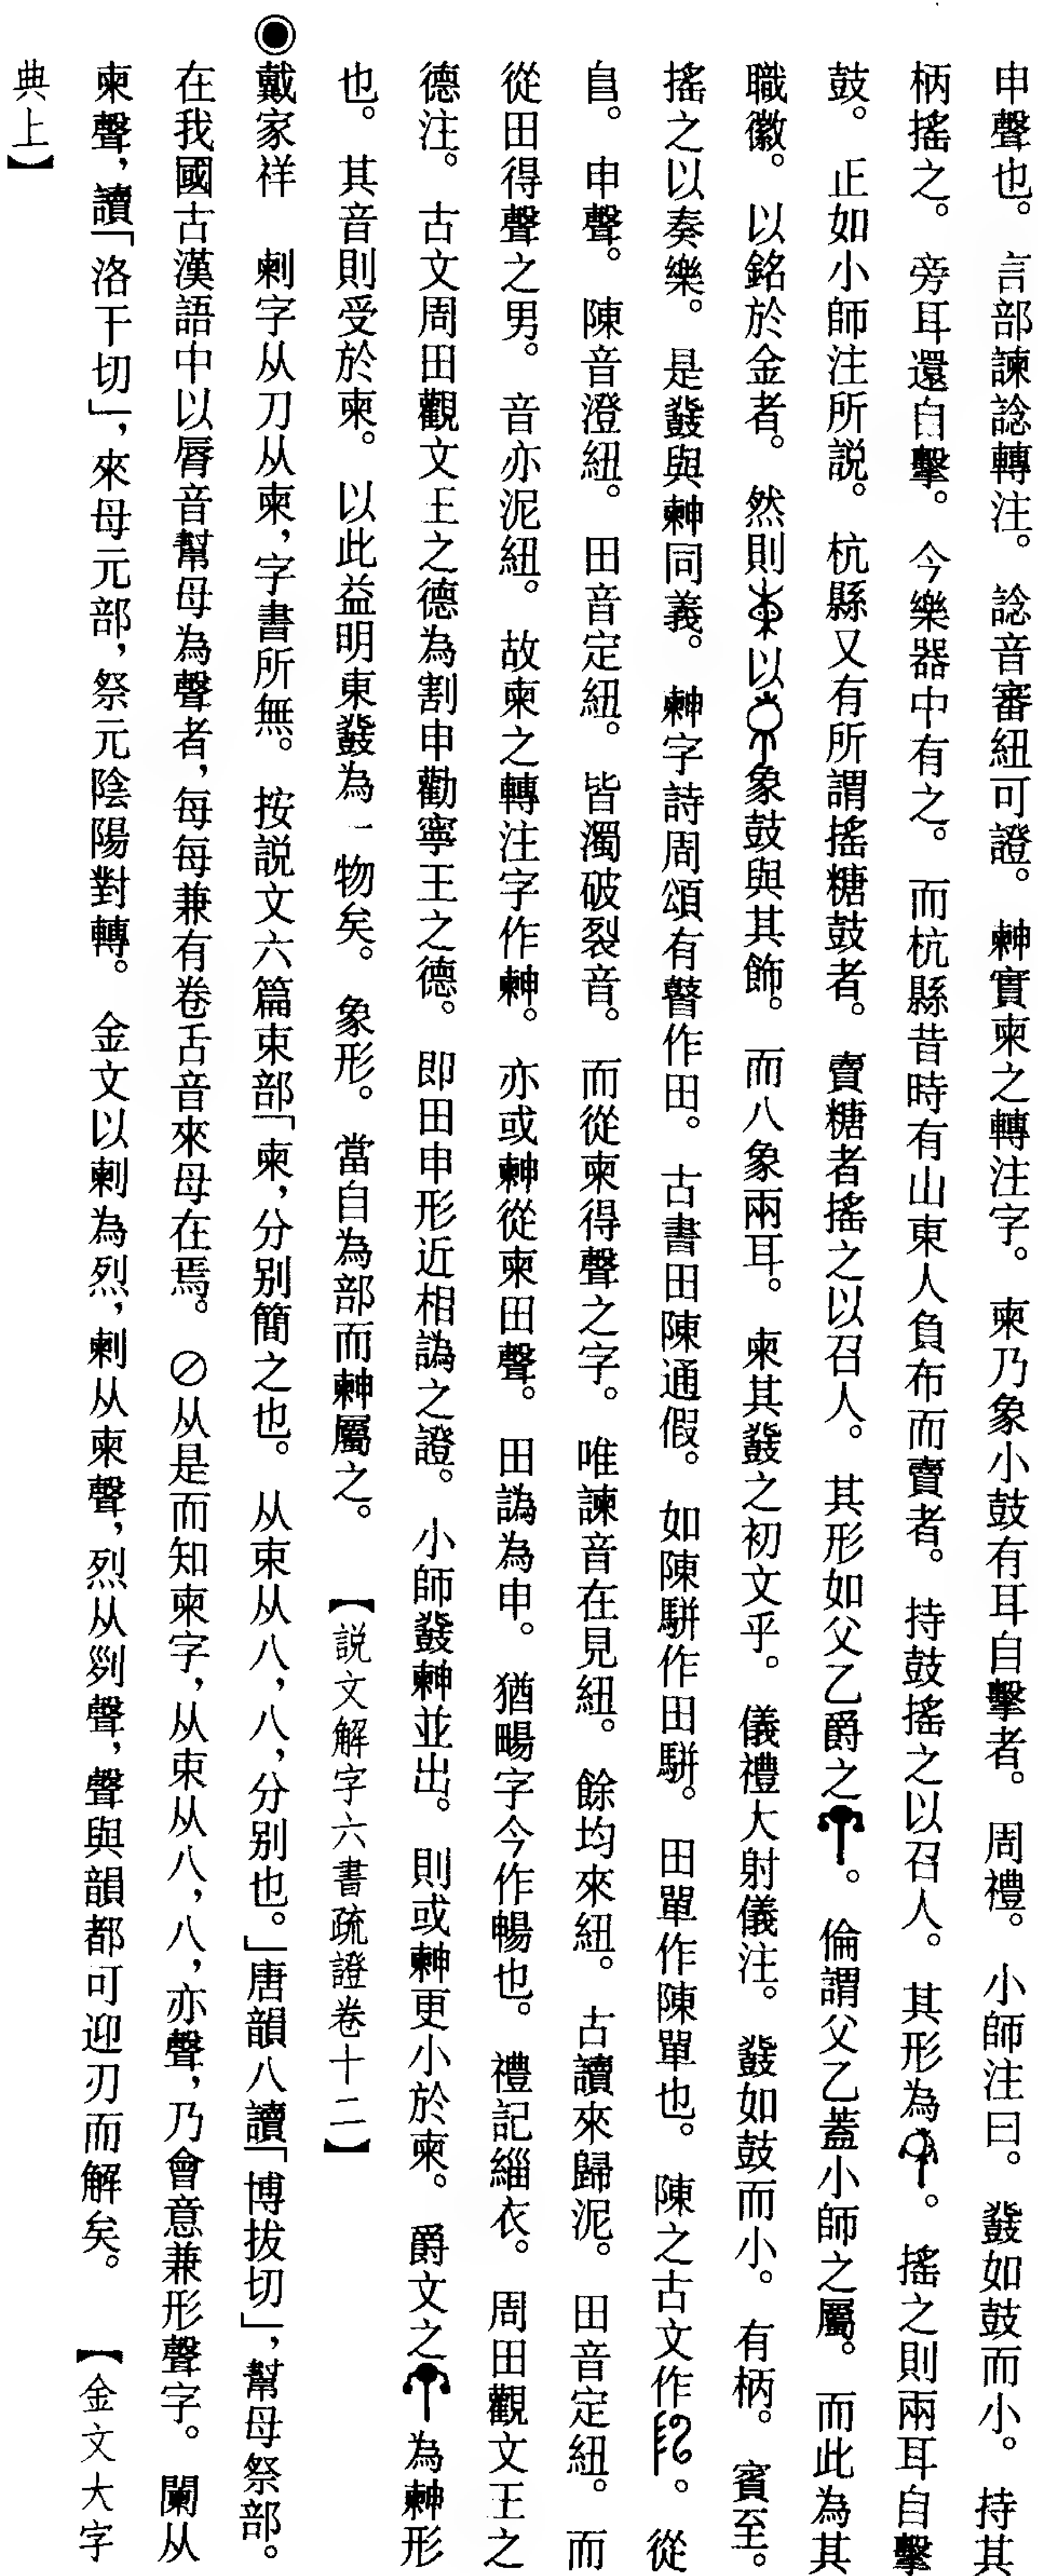 申聲也。言部諫諗轉注。諗音審紐可證。𣌾實柬之轉注字。柬乃象小鼓有耳自擊者。周禮。小師注曰。鼗如鼓而小。持其
柄搖之。旁耳還自擊。今樂器中有之。而杭縣昔時有山東人負布而賣者。持鼓搖之以召人。其形為。搖之則兩耳自擊
鼓。正如小師注所説。杭縣又有所謂搖糖鼓者。賣糖者搖之以召人。其形如父乙爵之。倫謂父乙蓋小師之屬。而此為其
職徽。以銘於金者。然則以象鼓與其飾。而八象兩耳。柬其鼗之初文乎。儀禮大射儀注。鼗如鼓而小。有柄。賓至。
搖之以奏樂。是鼗與𣌾同義。𣌾字詩周頌有瞽作田。古書田陳通假。如陳駢作田駢。田單作陳單也。陳之古文作。從
𠂤。申聲。陳音澄紐。田音定紐。皆濁破裂音。而從柬得聲之字。唯諫音在見紐。餘均來紐。古讀來歸泥。田音定紐。而
從田得聲之男。音亦泥紐。故柬之轉注字作𣌾。亦或𣌾從柬田聲。田譌為申。猶畼字今作暢也。禮記緇衣。周田觀文王之
德注。古文周田觀文王之德為割申勸寧王之德。即田申形近相譌之證。小師鼗𣌾並出。則或𣌾更小於柬。爵文之為𣌾形
也。其音則受於柬。以此益明柬鼗為一物矣。象形。當自為部而𣌾屬之。【説文解字六書疏證卷十二】
◉戴家祥　剌字从刀从柬，字書所無。按説文六篇束部「柬，分别簡之也。从束从八，八，分别也。」唐韻八讀「博拔切」，幫母祭部。
在我國古漢語中以脣音幫母為聲者，每每兼有卷舌音來母在焉。⊘从是而知柬字，从束从八，八，亦聲，乃會意兼形聲字。闌从
柬聲，讀「洛干切」，來母元部，祭元陰陽對轉。金文以剌為烈，剌从柬聲，烈从𠛱聲，聲與韻都可迎刃而解矣。【金文大字
典上】